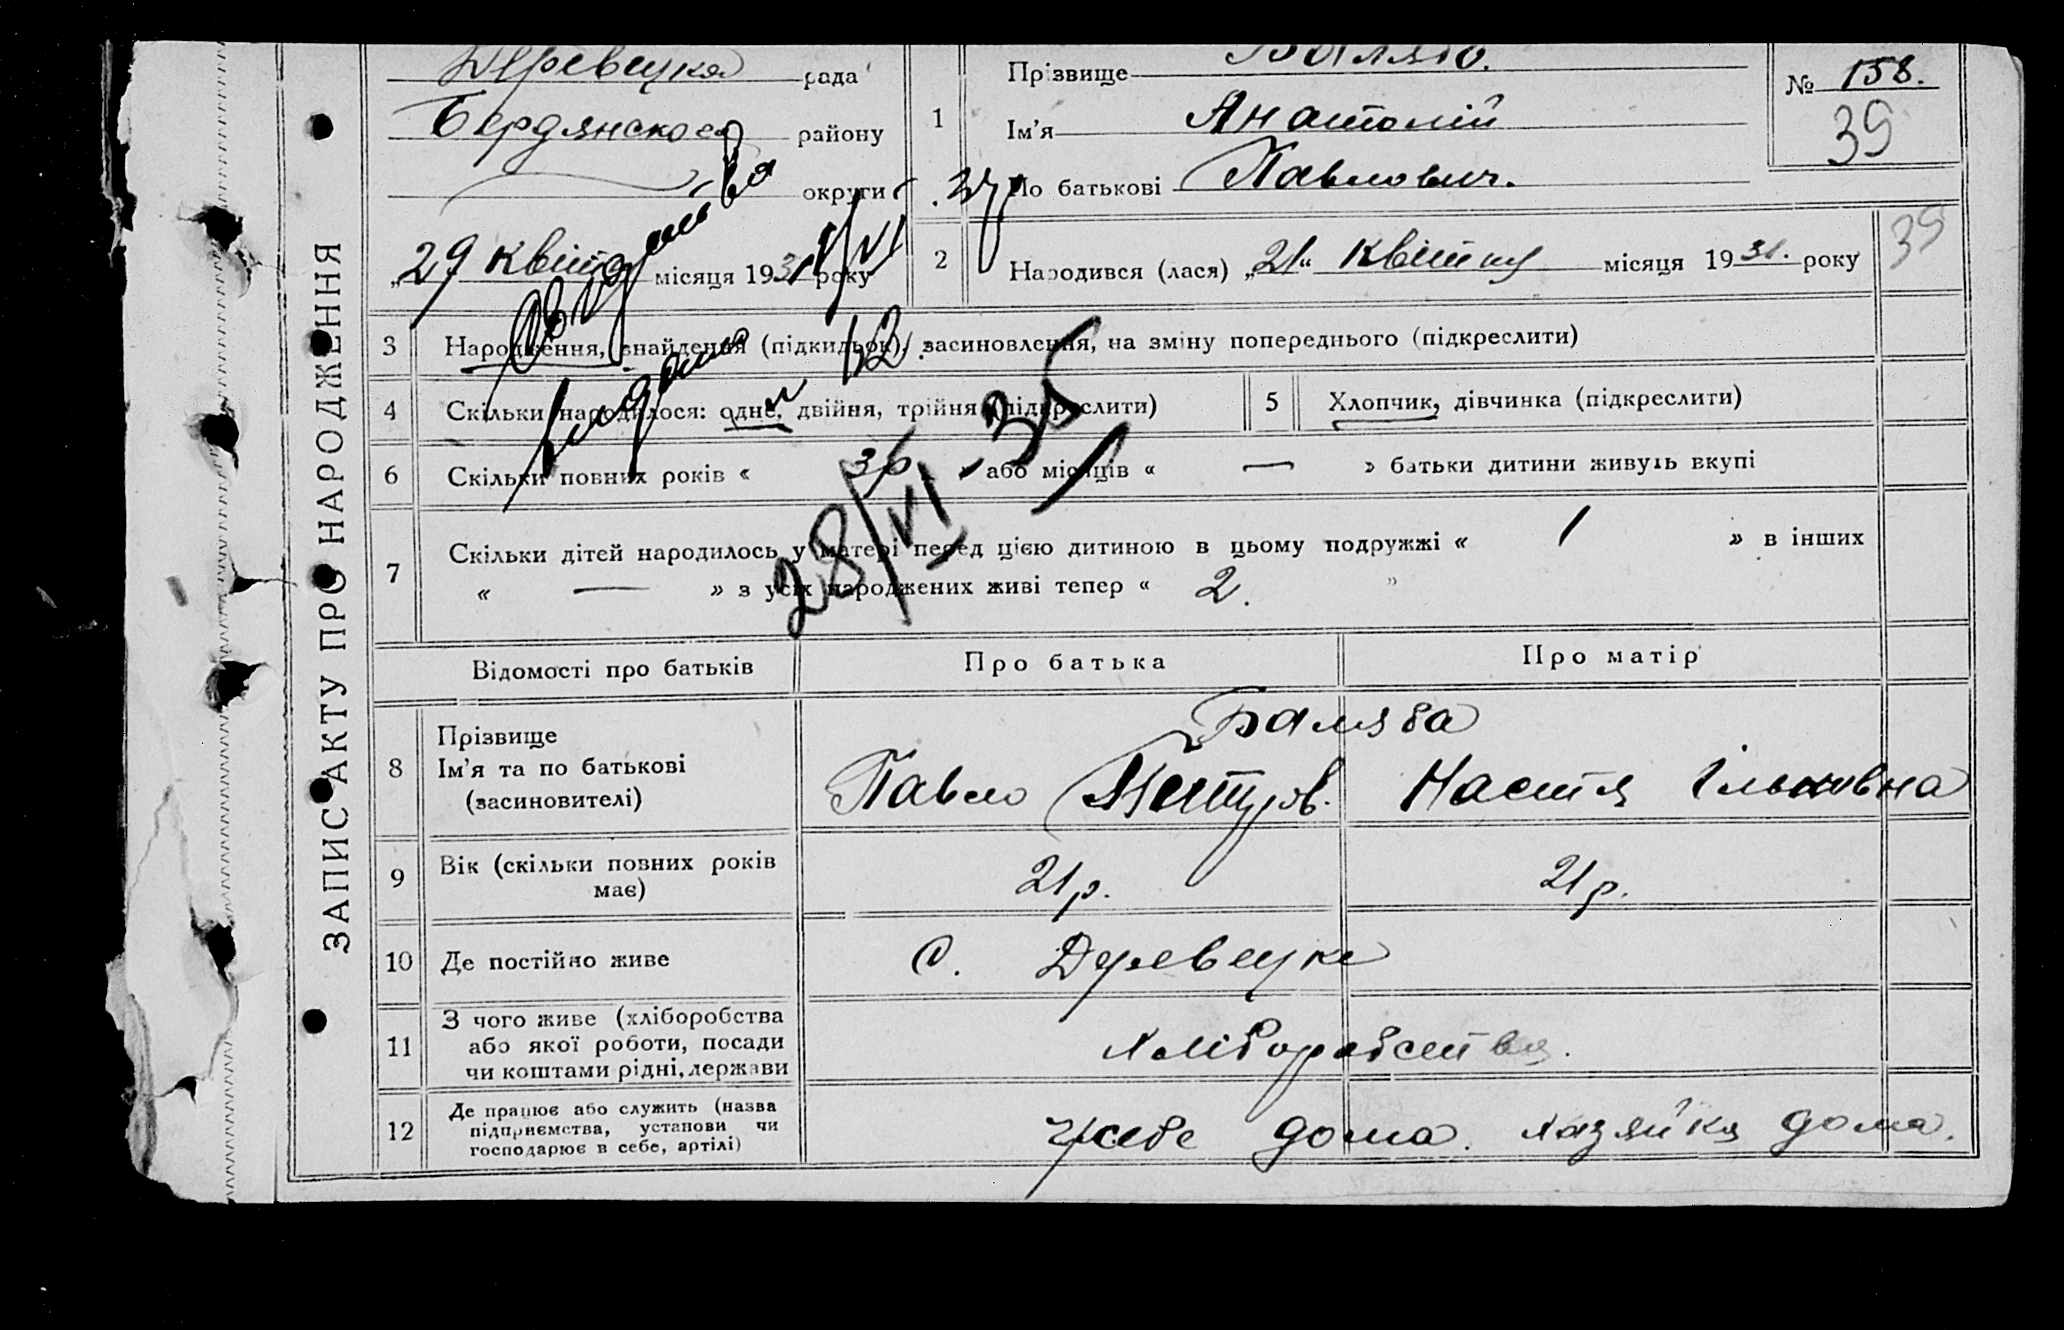 ЗАПИС АКТУ ПРО НАРОДЖЕННЯ
рада
Бердянского району
округи
„29 квітня місяця 1931 року
1
Прізвище
Ім'я Анатолій
По батькові Павлович.
№ 158.
39
39
2
Народився (лася) „21“ квітня місяця 1931. року
3
Народження, знайдення (підкидьок), засиновлення, на зміну попереднього (підкреслити)
4
Скільки народилося: одне, двійня, трійня (підкреслити)
5
Хлопчик, дівчинка (підкреслити)
6
Скільки повних років « 3р » або місяців « — » батьки дитини живуть вкупі
7
Скільки дітей народилось у матері перед цією дитиною в цьому подружжі « 1 » в інших
« — » з усіх народжених живі тепер « 2. »
28/VI-35
Відомості про батьків
Про батька
Про матір
8
Прізвище
Ім'я та по батькові
(засиновителі)
Балява
Павло Петров.
Настя Ільковна
9
Вік (скільки повних років
має)
21р.
21р.
10
Де постійно живе
с.
11
З чого живе (хліборобства
або якої роботи, посади
чи коштами рідні, держави
хліборобства.
12
Де працює або служить (назва
підприємства, установи чи
господарює в себе, артілі)
у себе дома.
хазяйка дома.